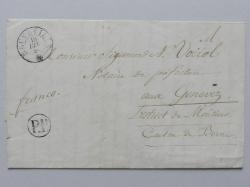 Monsieur A. Voirol
Notaire de profession
franco.
aux Genevez
District de Moutier
Canton de Berne